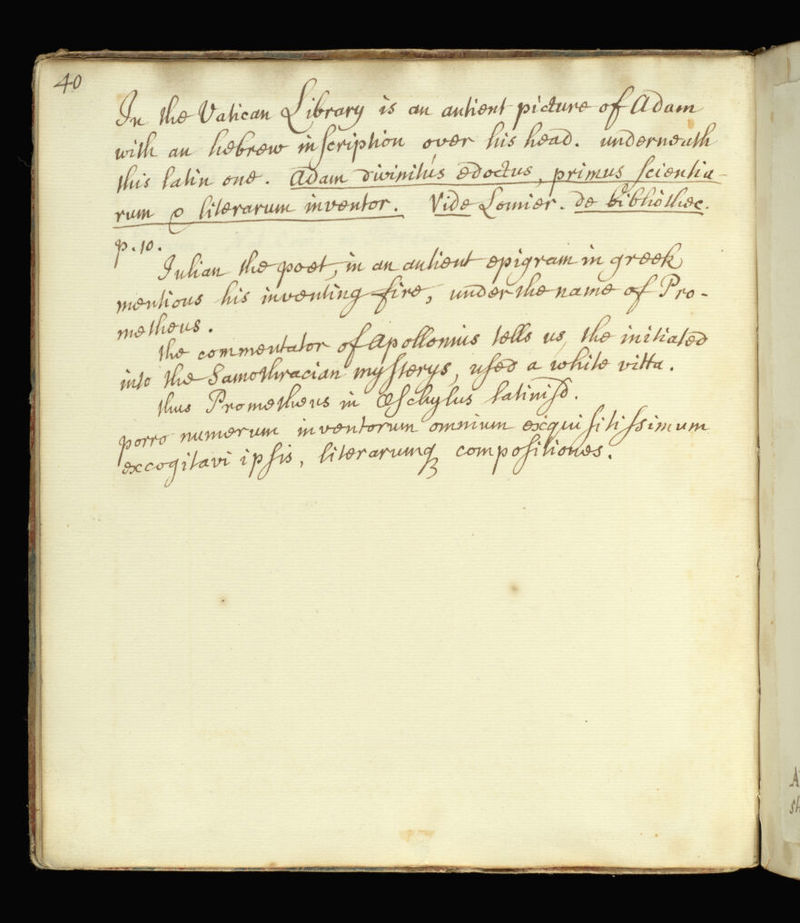 40
In the Vatican Library is an antient picture of Adam
with an hebrew inscription over his head. underneath
this latin one. Adam divinitús edoctus, primus scientia-
rum & literarum inventor. Vide Lomier. de bibliothec.
p. 10.
Julian the poet, in an antient epigram in greek
mentions his inventing fire, under the name of Pro-
metheus.
the commentator of Apollonius tells us, the initiated
into the Samothracian mysterys, used a white vitta.
thus Prometheus in Æschylus latinisd.
porro numerum inventorum omnium exquisitissimum
excogitavi ipsis, literarumq; compositiones.